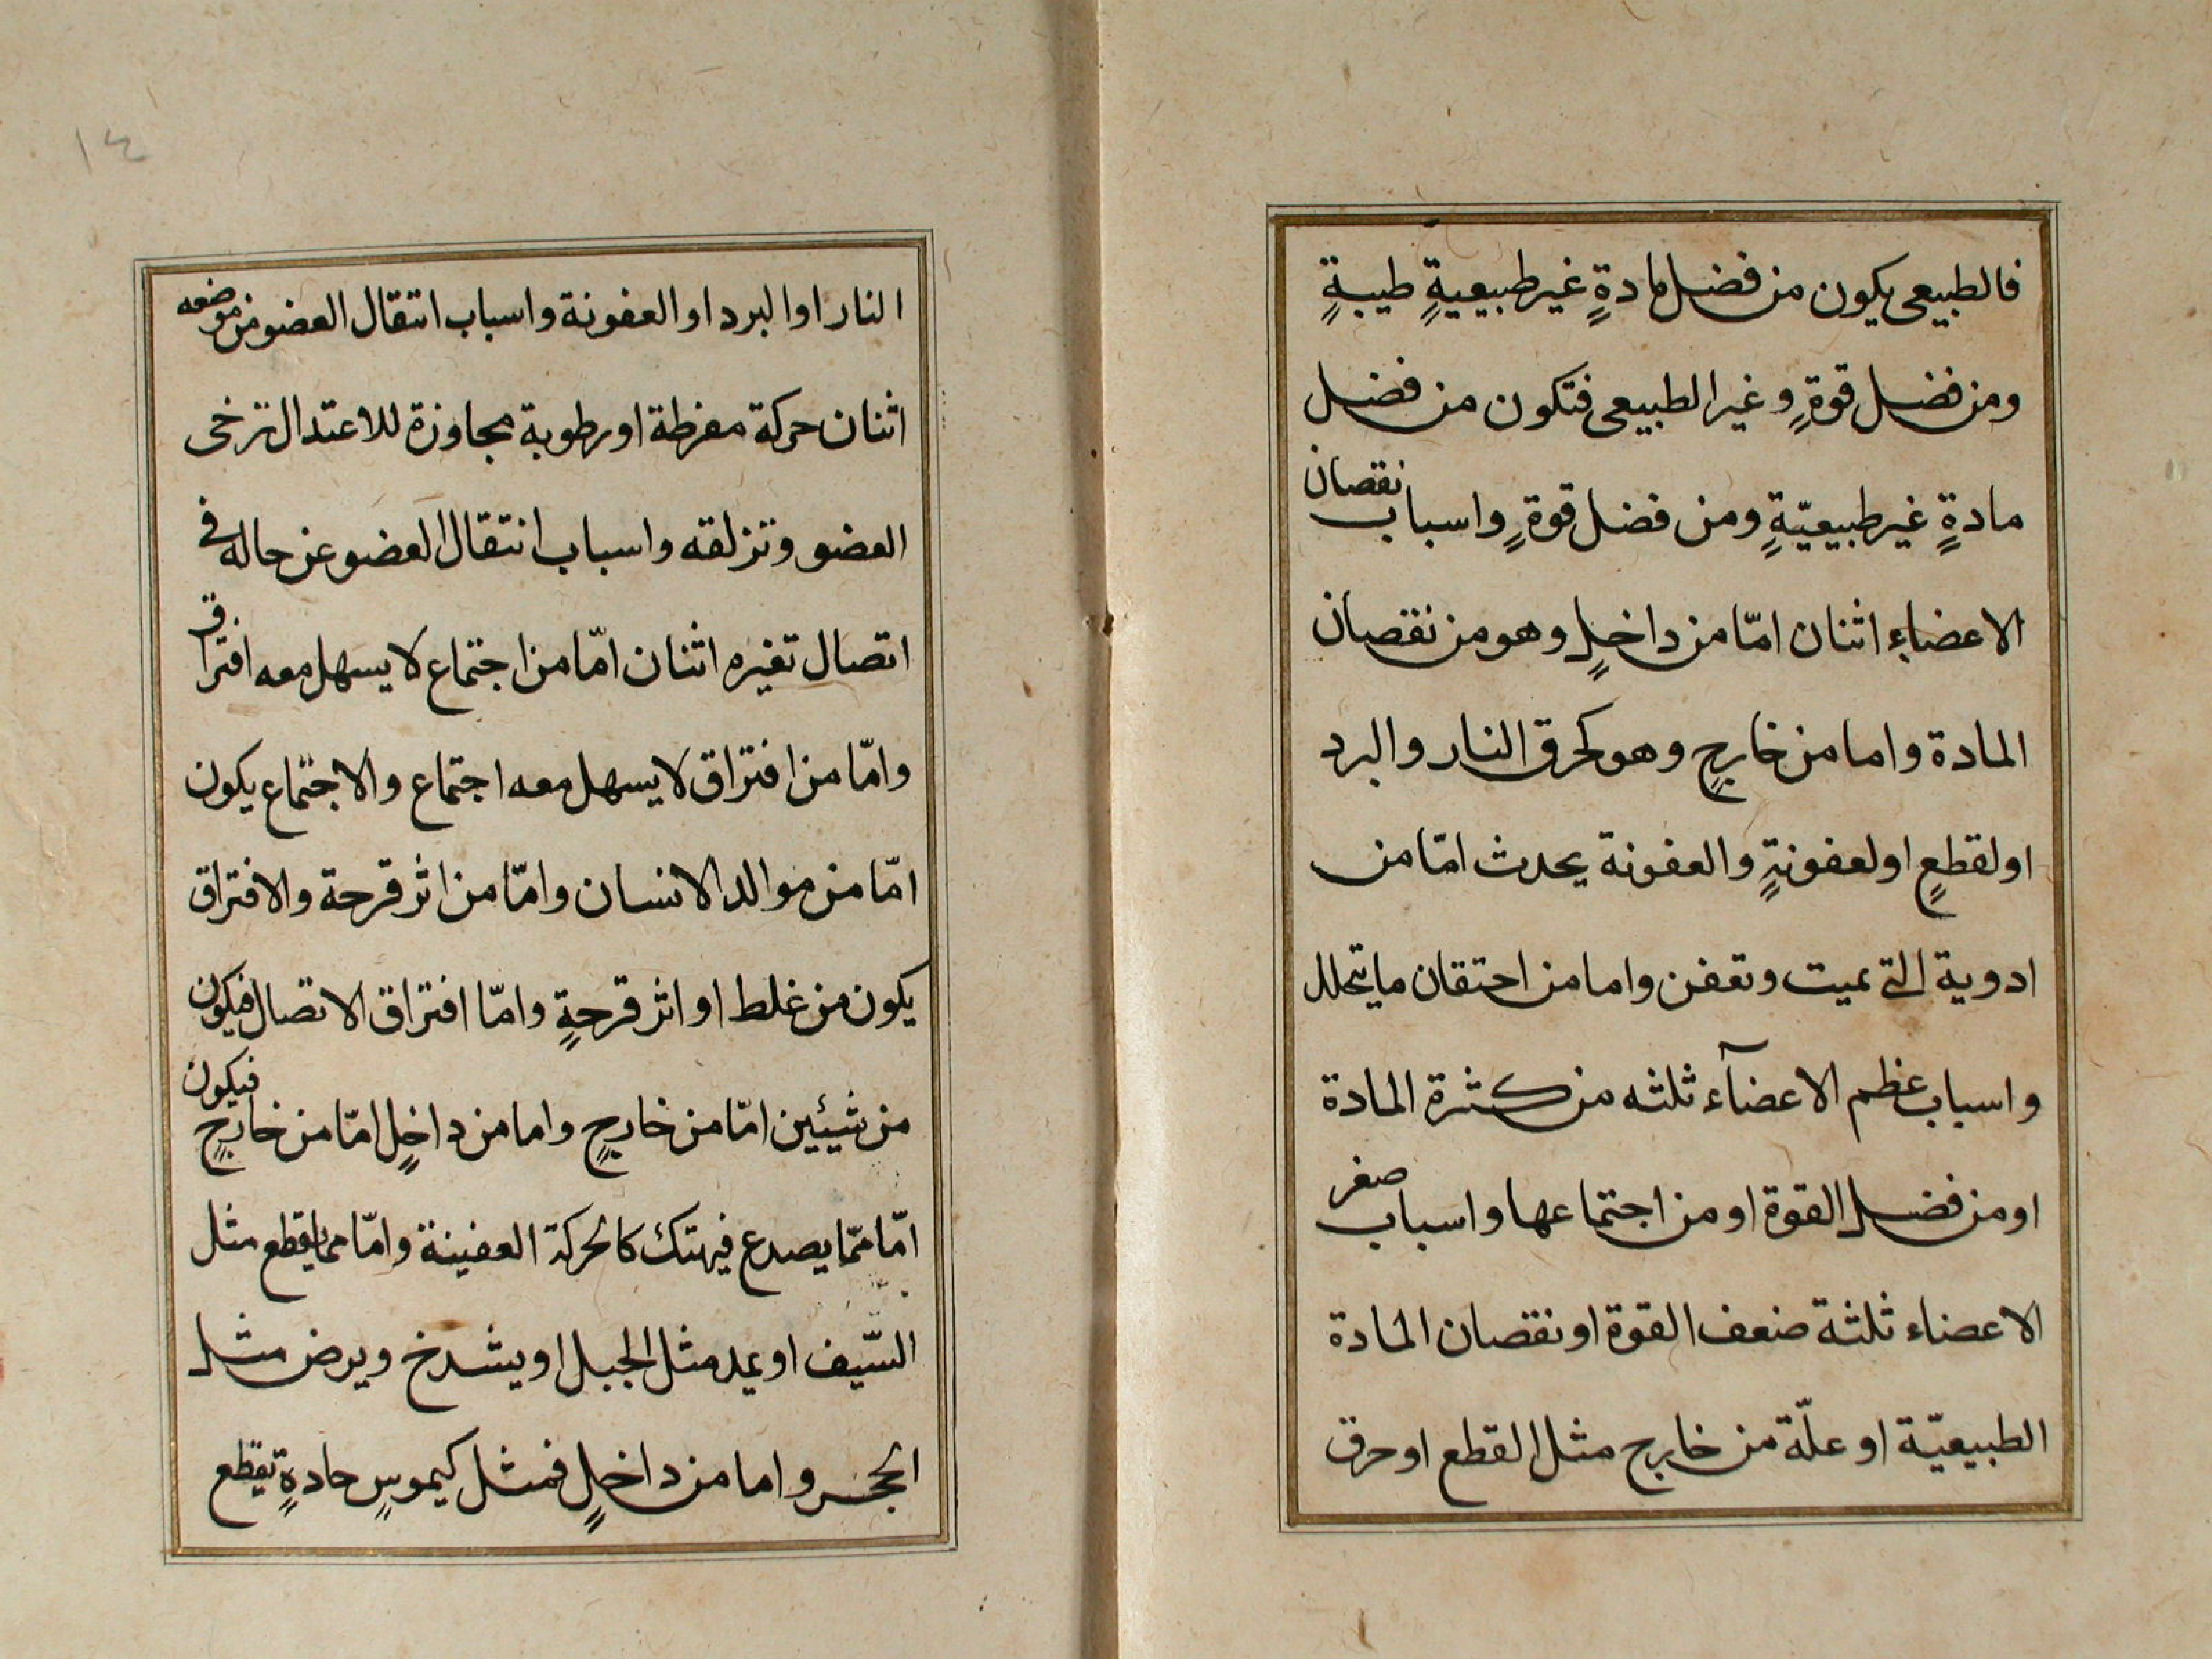 فالطبيعى يكون من فضل مادةٍ غير طبيعيةٍ طيبةٍ
ومن فضل قوةٍ وغير الطبيعى فتكون من فضل
مادةٍ غير طبيعيّةٍ ومن فضل قوةٍ واسباب نقصان
الاعضاء اثنان امّا من داخلٍ وهو من نقصان
المادة واما من خارجٍ وهو كحرق النار والبرد
او لقطعٍ او لعفونةٍ والعفونة يحدث امّا من
ادوية التى تميت وتعفن واما من احتقان ما يتحلل
واسباب عظم الاعضآء ثلثه من كثرة المادة
او من فضل القوة او من اجتماعها واسباب صغر
الاعضاء ثلثة ضعف القوة او نقصان المادة
الطبيعيّة او علّة من خارج مثل القطع او حرق
١٤
النار او البرد او العفونة واسباب انتقال العضو من موضعه
اثنان حركة مفرطة او رطوبة مجاوزة للاعتدال ترخى
العضو وتزلقه واسباب انتقال العضو عن حاله فى
اتصال تغيره اثنان امّا من اجتماع لا يسهل معه افتراق
وامّا من افتراق لا يسهل معه اجتماع والاجتماع يكون
امّا من موالد الانسان وامّا من اثر قرحة والافتراق
يكون من غلط او اثر قرحةٍ وامّا افتراق الاتصال فيكون
من شيئين امّا من خارجٍ واما من داخلٍ امّا من خارجٍ فيكون
امّا ممّا يصدع فيهتك كالحركة العفينة وامّا مما يقطع مثل
السّيف او يمد مثل الجبل او يشدخ ويرض مثل
الحجر واما من داخلٍ فمثل كيموسٍ حادةٍ تقطع